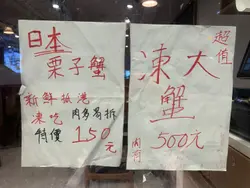 日本
栗子蟹
新鮮抵港
凍吃 肉多易拆
特價150元
超值
凍大
蟹
500元